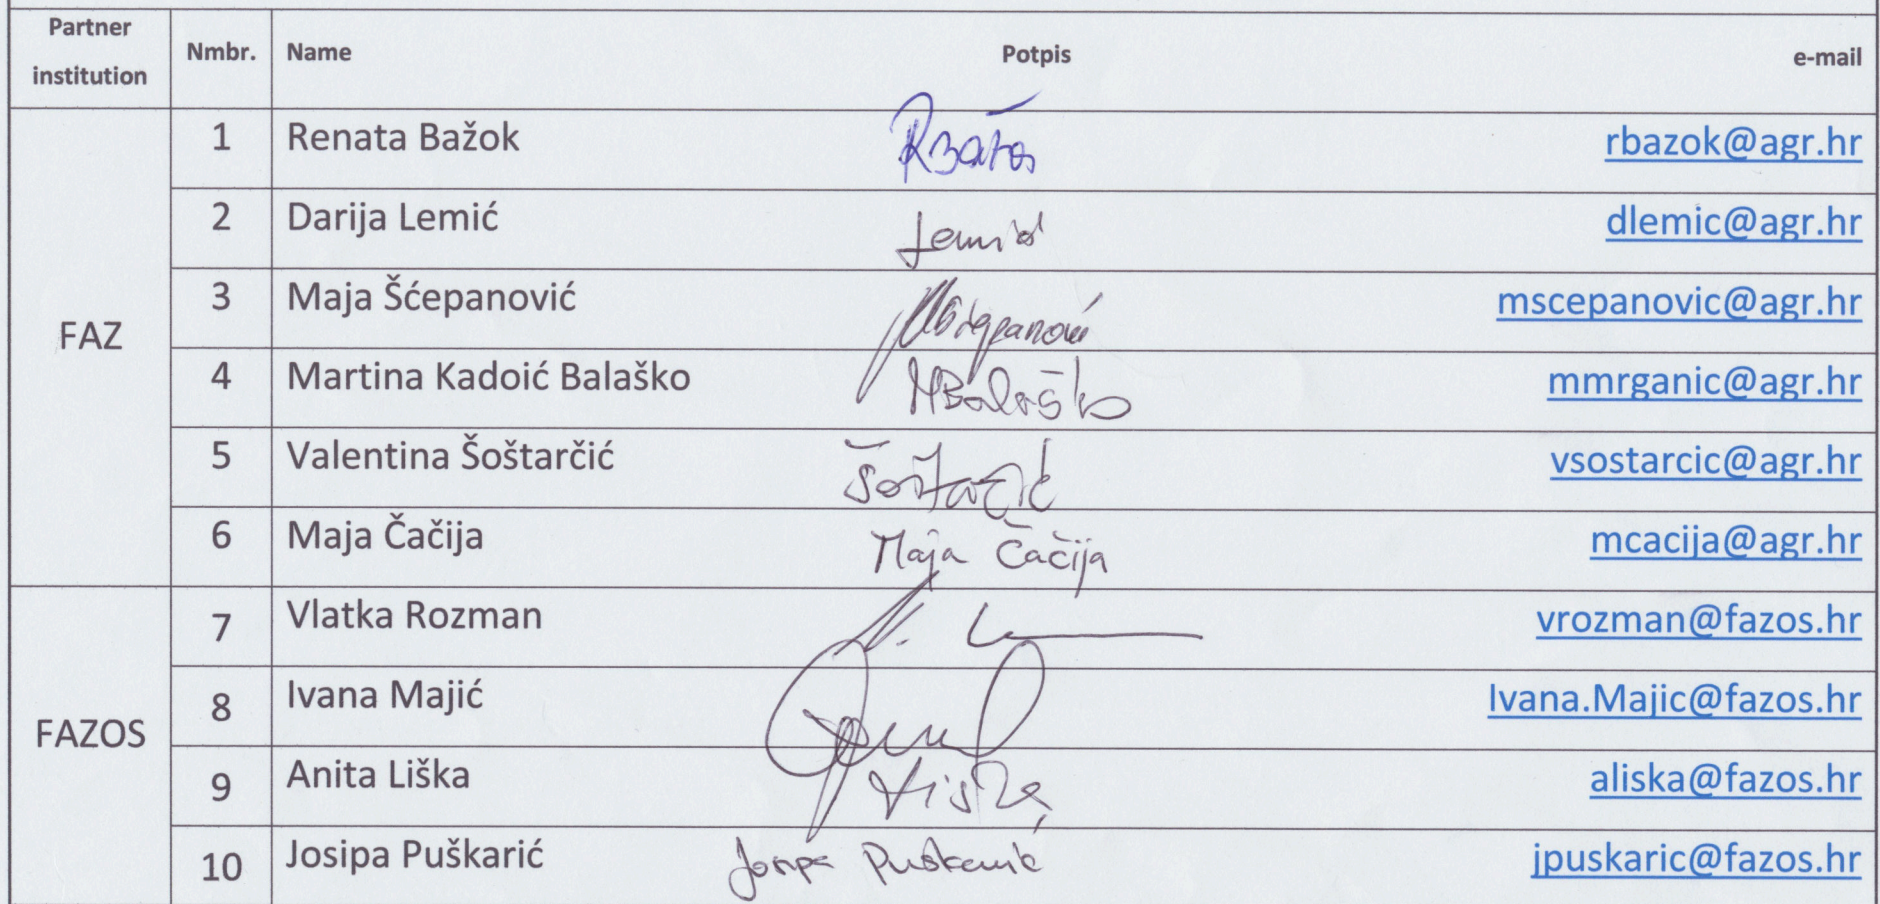 Partner institution Nmbr. Name Potpis e-mail
FAZ
1 Renata Bažok RBažok rbazok@agr.hr
2 Darija Lemić Lemić dlemic@agr.hr
3 Maja Šćepanović mscepanovic@agr.hr
4 Martina Kadoić Balaško MBalaško mmrganic@agr.hr
5 Valentina Šoštarčić Šoštarčić vsostarcic@agr.hr
6 Maja Čačija Maja Čačija mcacija@agr.hr
FAZOS
7 Vlatka Rozman vrozman@fazos.hr
8 Ivana Majić Ivana.Majic@fazos.hr
9 Anita Liška Liška aliska@fazos.hr
10 Josipa Puškarić Josipa Puškarić jpuskaric@fazos.hr